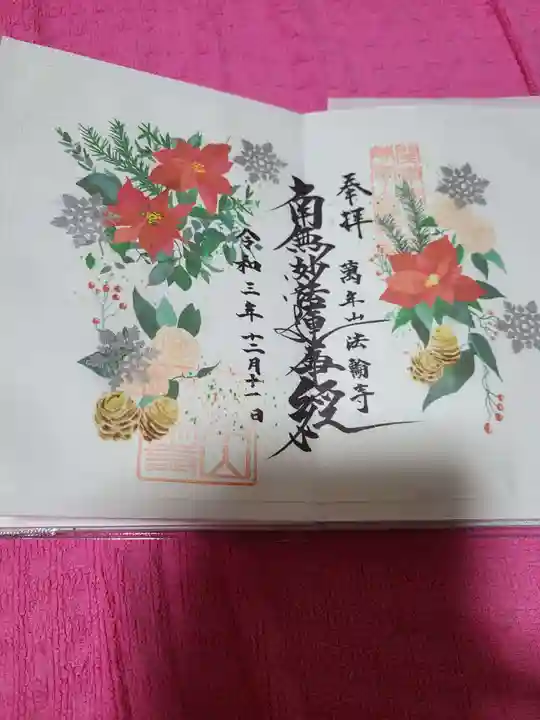 奉拝
萬年山法輪寺
南無妙法蓮華経
令和三年十二月十一日